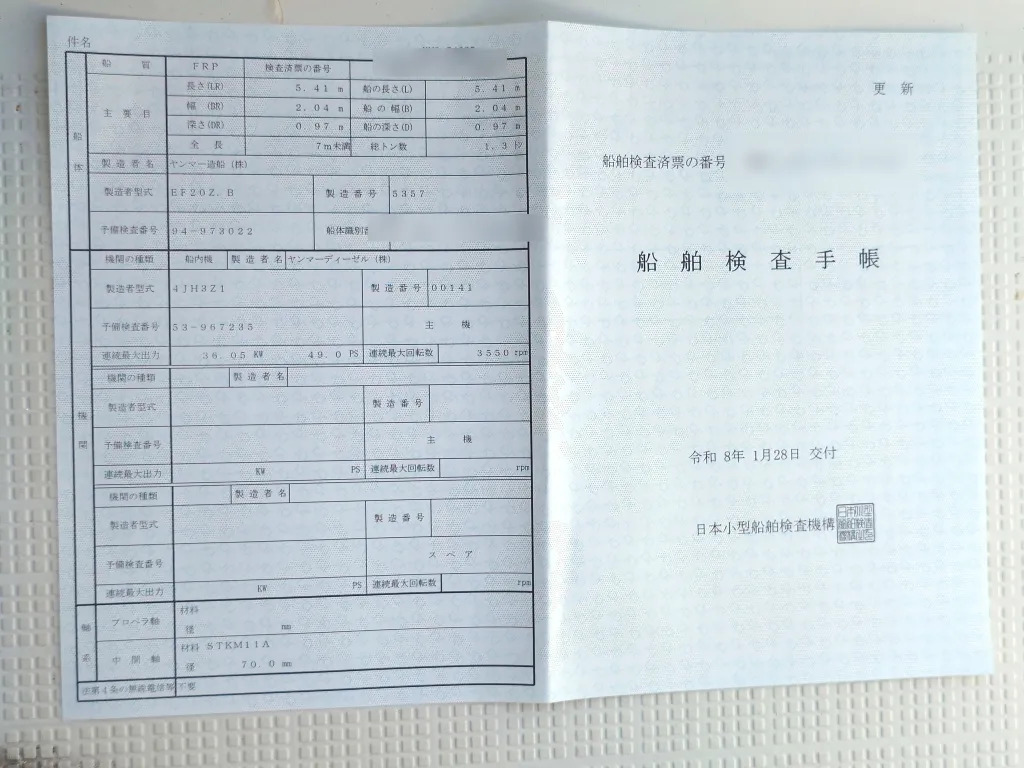 件名
船体
船質 FRP 検査済票の番号
主要目 長さ(LR) 5.41 m 船の長さ(L) 5.41 m
幅 (BR) 2.04 m 船の幅(B) 2.04 m
深さ(DR) 0.97 m 船の深さ(D) 0.97 m
全長 7m未満 総トン数 1.3トン
製造者名 ヤンマー造船(株)
製造者型式 EF20Z.B 製造番号 5357
予備検査番号 94-973022 船体識別
機関
機関の種類 船内機 製造者名 ヤンマーディーゼル(株)
製造者型式 4JH3Z1 製造番号 00141
予備検査番号 53-967235 主機
連続最大出力 36.05 KW 49.0 PS 連続最大回転数 3550 rpm
機関の種類 製造者名
製造者型式 製造番号
予備検査番号 主機
連続最大出力 KW PS 連続最大回転数 rpm
機関の種類 製造者名
製造者型式 製造番号
予備検査番号 スペア
連続最大出力 KW PS 連続最大回転数 rpm
軸系
プロペラ軸 材料
径 mm
中間軸 材料 STKM11A
径 70.0 mm
法第4条の無線電信等 不要
更新
船舶検査済票の番号
船舶検査手帳
令和 8年 1月28日 交付
日本小型船舶検査機構